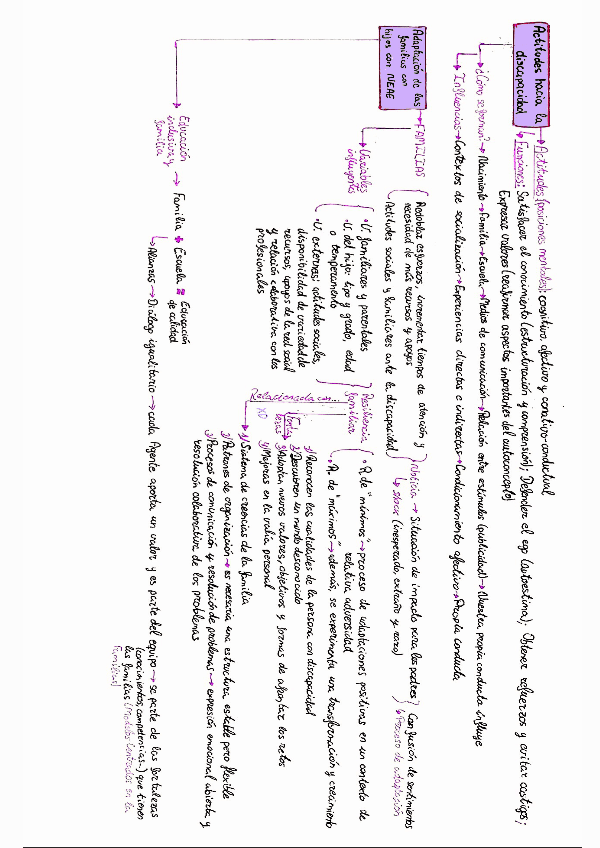 Actitudes hacia la
discapacidad
→ Actitudes (posiciones mentales): cognitivo, afectivo y conativo-conductual
→ Funciones: Satisfacer el conocimiento (estructuración y comprensión); Defender el ego (autoestima); Obtener refuerzos y evitar castigos;
Expresar valores (reafirmar aspectos importantes del autoconcepto)
→ ¿Cómo se forman? → Nacimiento → Familia → Escuela → Medios de comunicación → Relación entre estímulos (publicidad) → Nuestra propia conducta influye
→ Influencias → Contextos de socialización → Experiencias directas e indirectas → Condicionamiento afectivo → Propia conducta
Adaptación de las
familias con
hijos con NEAE
→ FAMILIAS
Redoblar esfuerzos, incrementar tiempos de atención y
necesidad de más recursos y apoyos
Actitudes sociales y familiares ante la discapacidad
Noticia → Situación de impacto para los padres
↳ shock (inesperado, extraño y raro)
Confusión de sentimientos
↳ Proceso de adaptación
→ Variables
influyentes
• V. familiares y parentales
• V. del hijo: tipo y grado, edad
o temperamento
• V. externas: actitudes sociales,
disponibilidad de variedad de
recursos, apoyos de la red social
y relación colaborativa con los
profesionales
Resiliencia
familiar
• R. de "mínimos" → proceso de adaptaciones positivas en un contexto de
relativa adversidad
• R. de "máximos" → además, se experimenta una transformación y crecimiento
Relacionada con...
Forta
lezas
1) Reconocen las cualidades de la persona con discapacidad
2) Descubren un mundo desconocido
3) Adoptan nuevos valores, objetivos y formas de afrontar los retos
4) Mejoras en la valía personal
XD
→ 1) Sistema de creencias de la familia
2) Patrones de organización → es necesaria una estructura estable pero flexible
3) Procesos de comunicación y resolución de problemas → expresión emocional abierta y
resolución colaborativa de los problemas
→ Educación
inclusiva y
familia
→ Familia + Escuela = Educación
de calidad
↳ Alianzas → Diálogo igualitario → cada Agente aporta un valor y es parte del equipo → se parte de las fortalezas
(conocimientos, competencias...) que tienen
las familias (Modelos Centrados en la
Familia)